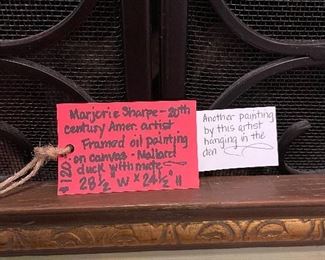 Marjorie Sharpe - 20th
century Amer. artist
Framed oil painting
on canvas - Mallard
duck with mate -
28 1/2" W x 24 1/2" H
$120.
Another painting
by this artist
hanging in the
den